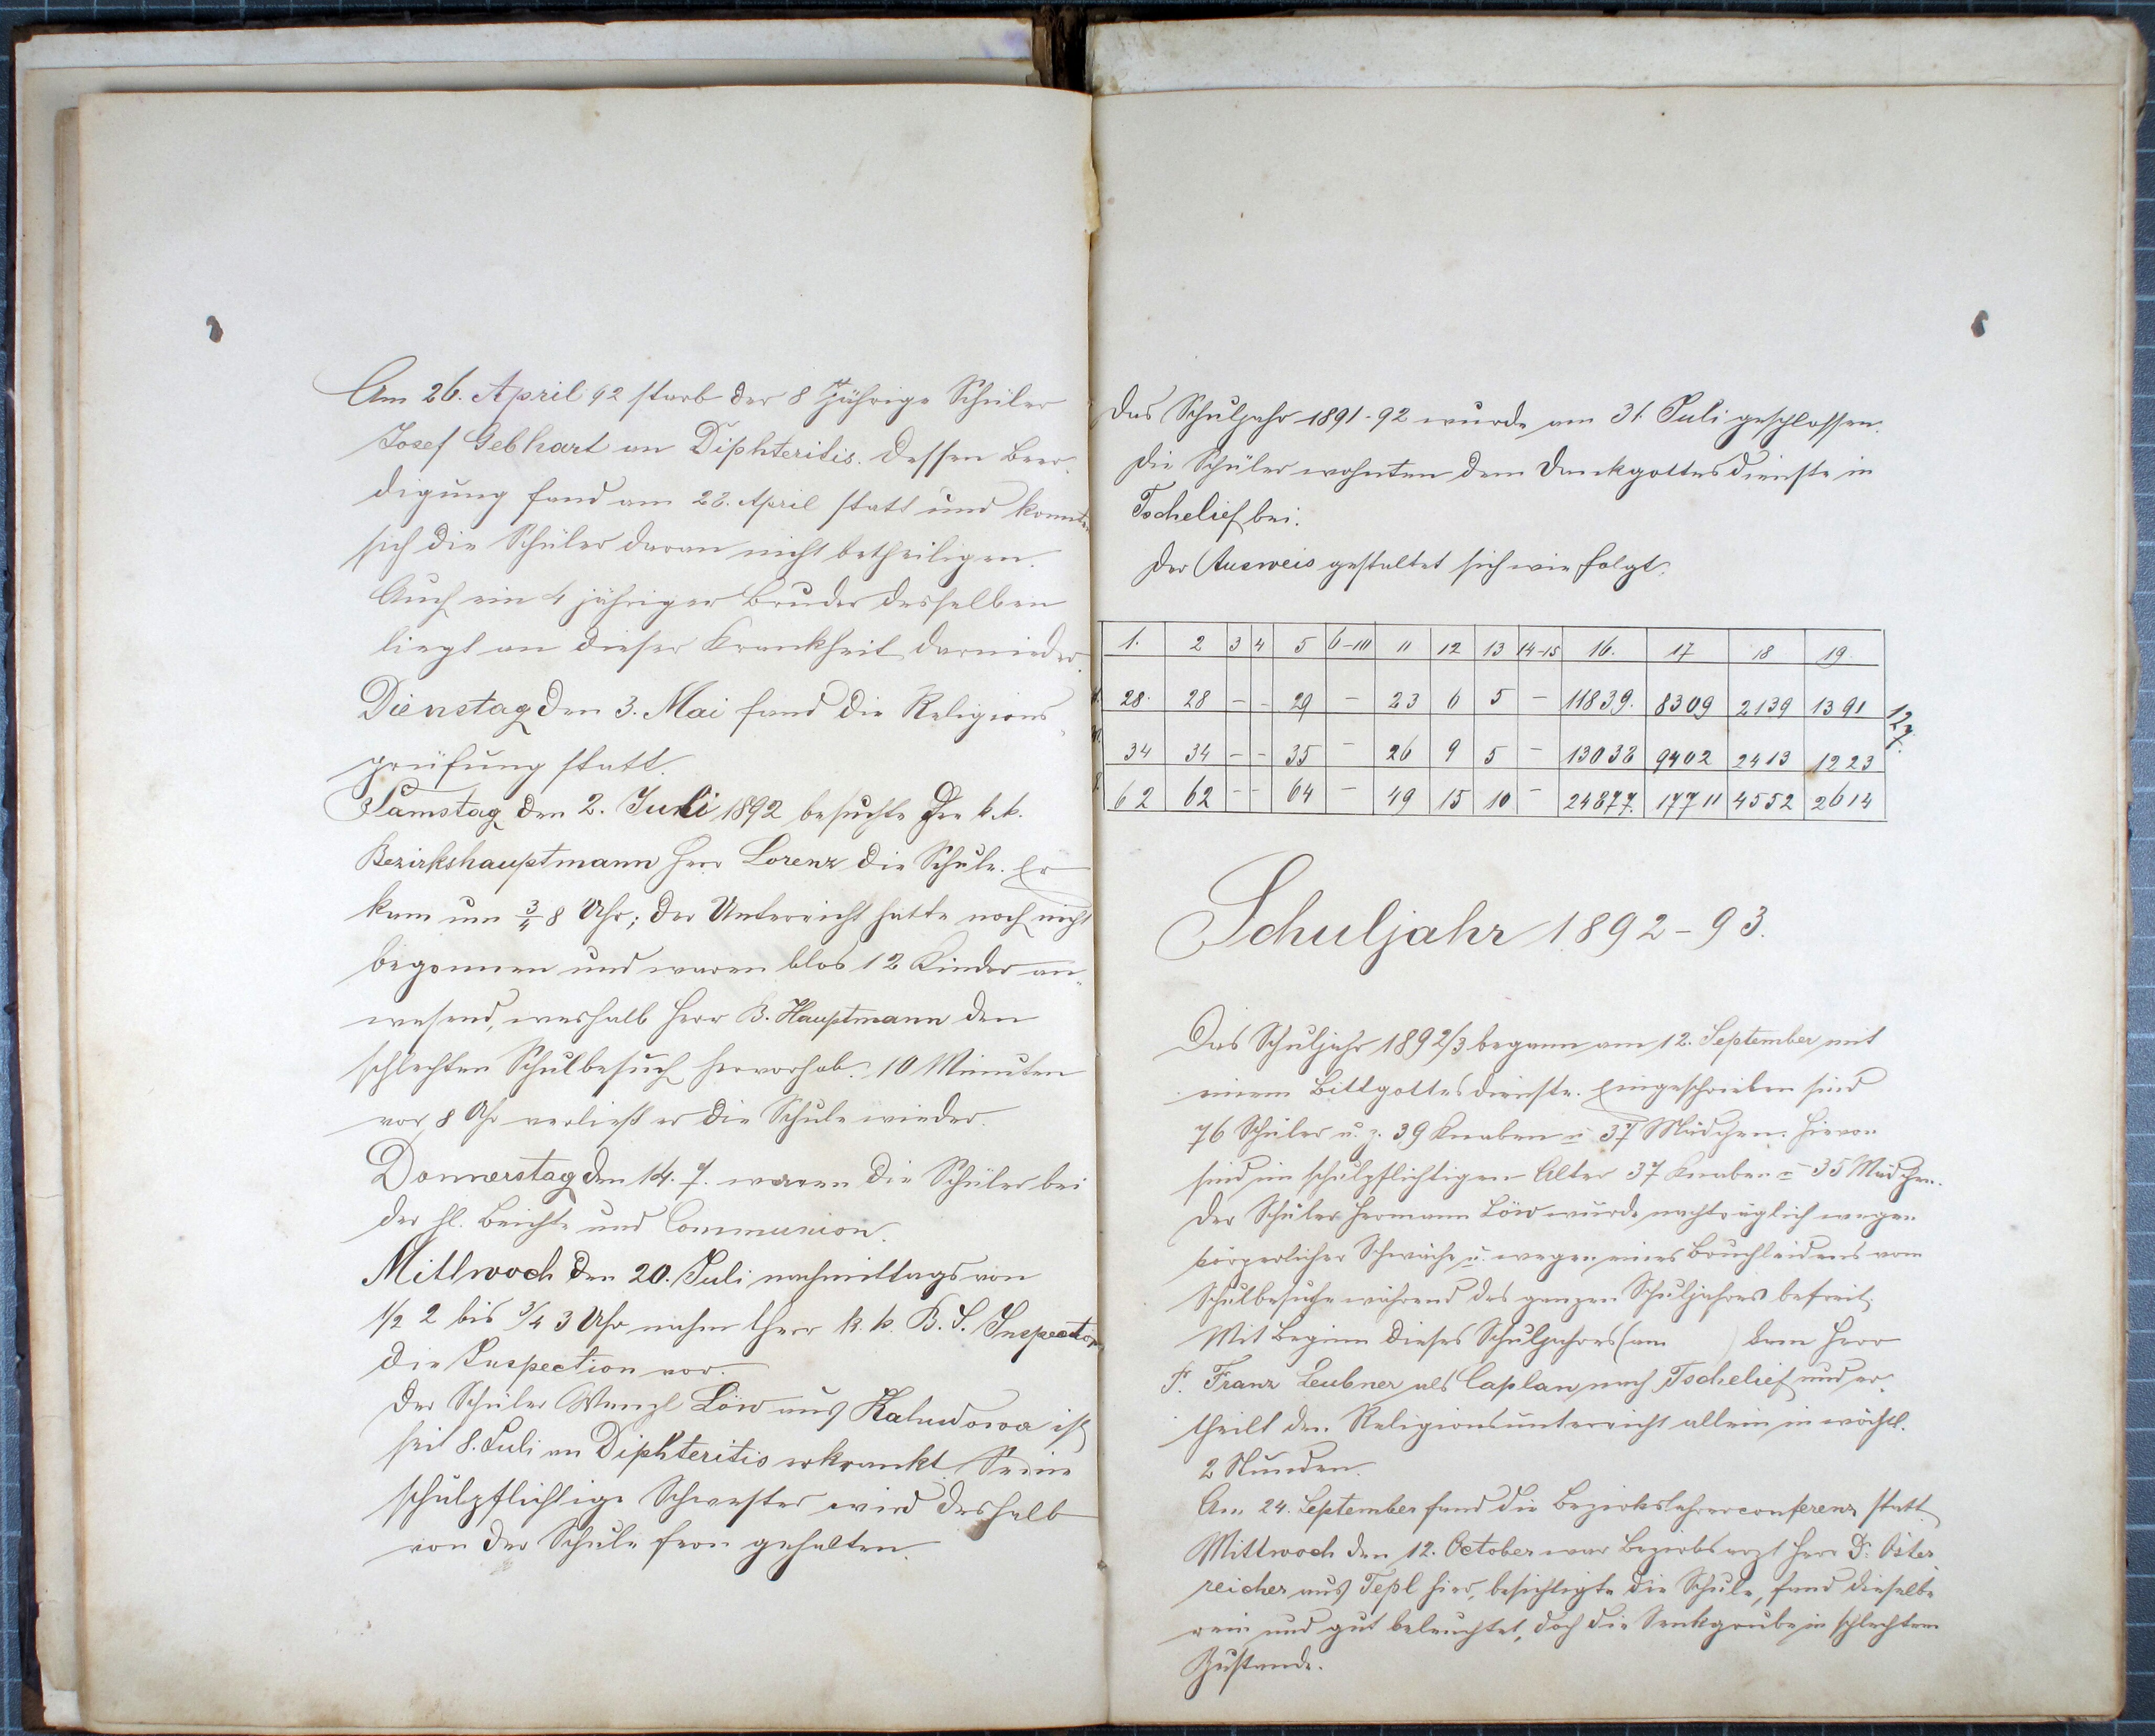 Am 26. April 92 starb der 8 jährige Schüler
Josef Gebhart an Diphteritis. Dessen Beer-
digung fand am 28. April statt und konnten
sich die Schüler daran nicht betheiligen.
Auch ein 4 jähriger Bruder desselben
liegt an dieser Krankheit darnieder.
Dienstag den 3. Mai fand die Religions-
prüfung statt.
Samstag den 2. Juli 1892 besuchte der k. k.
Bezirkshauptmann Herr Lorenz die Schule. Er
kam um 3/4 8 Uhr; der Unterricht hatte noch nicht
begonnen und waren blos 12 Kinder an-
wesend, weshalb Herr B. Hauptmann den
schlechten Schulbesuch hervorhob. 10 Minuten
vor 8 Uhr verließ er die Schule wieder.
Donnerstag den 14. 7. waren die Schüler bei
der hl. Beichte und Communion.
Mittwoch den 20. Juli nachmittags von
1/2 2 bis 3/4 3 Uhr nahm Herr k. k. B. S. Inspector
die Inspection vor.
Der Schüler Wenzl Löw aus Haludowa ist
seit 8. Juli an Diphteritis erkrankt. Seine
schulpflichtige Schwester wird deshalb
von der Schule fern gehalten.
Das Schuljahr 1891-92 wurde am 31. Juli geschlossen.
Die Schüler wohnten dem Dankgottesdienste in
Tschelief bei.
Der Ausweis gestaltet sich wie folgt:
1. 2 3 4 5 6-10 11 12 13 14-15 16. 17 18 19.
28. 28 - - 29 - 23 6 5 - 11839. 8309 2139 1391
34 34 - - 35 - 26 9 5 - 13038 9402 2413 1223
62 62 - - 64 - 49 15 10 - 24877. 17711 4552 2614
Schuljahr 1892-93.
Das Schuljahr 1892/3 begann am 12. September mit
einem Bittgottesdienste. Eingeschrieben sind
76 Schüler u. z. 39 Knaben u 37 Mädchen. Hievon
sind im schulpflichtigen Alter 37 Knaben u 35 Mädchen.
Der Schüler Hermann Löw wurde nachträglich wegen
körperlicher Schwäche u. wegen eines Bruchleidens vom
Schulbesuche während des ganzen Schuljahres befreit.
Mit Beginn dieses Schuljahres (am ) kam Herr
P. Franz Leubner als Caplan nach Tschelief und er-
theilt den Religionsunterricht allein in wöchtl.
2 Stunden.
Am 24. September fand die Bezirkslehrerconferenz statt.
Mittwoch den 12. October war Bezirksarzt Herr Dr. Öster
reicher aus Tepl hier, besichtigte die Schule, fand dieselbe
rein und gut beleuchtet, doch die Senkgrube in schlechtem
Zustande.